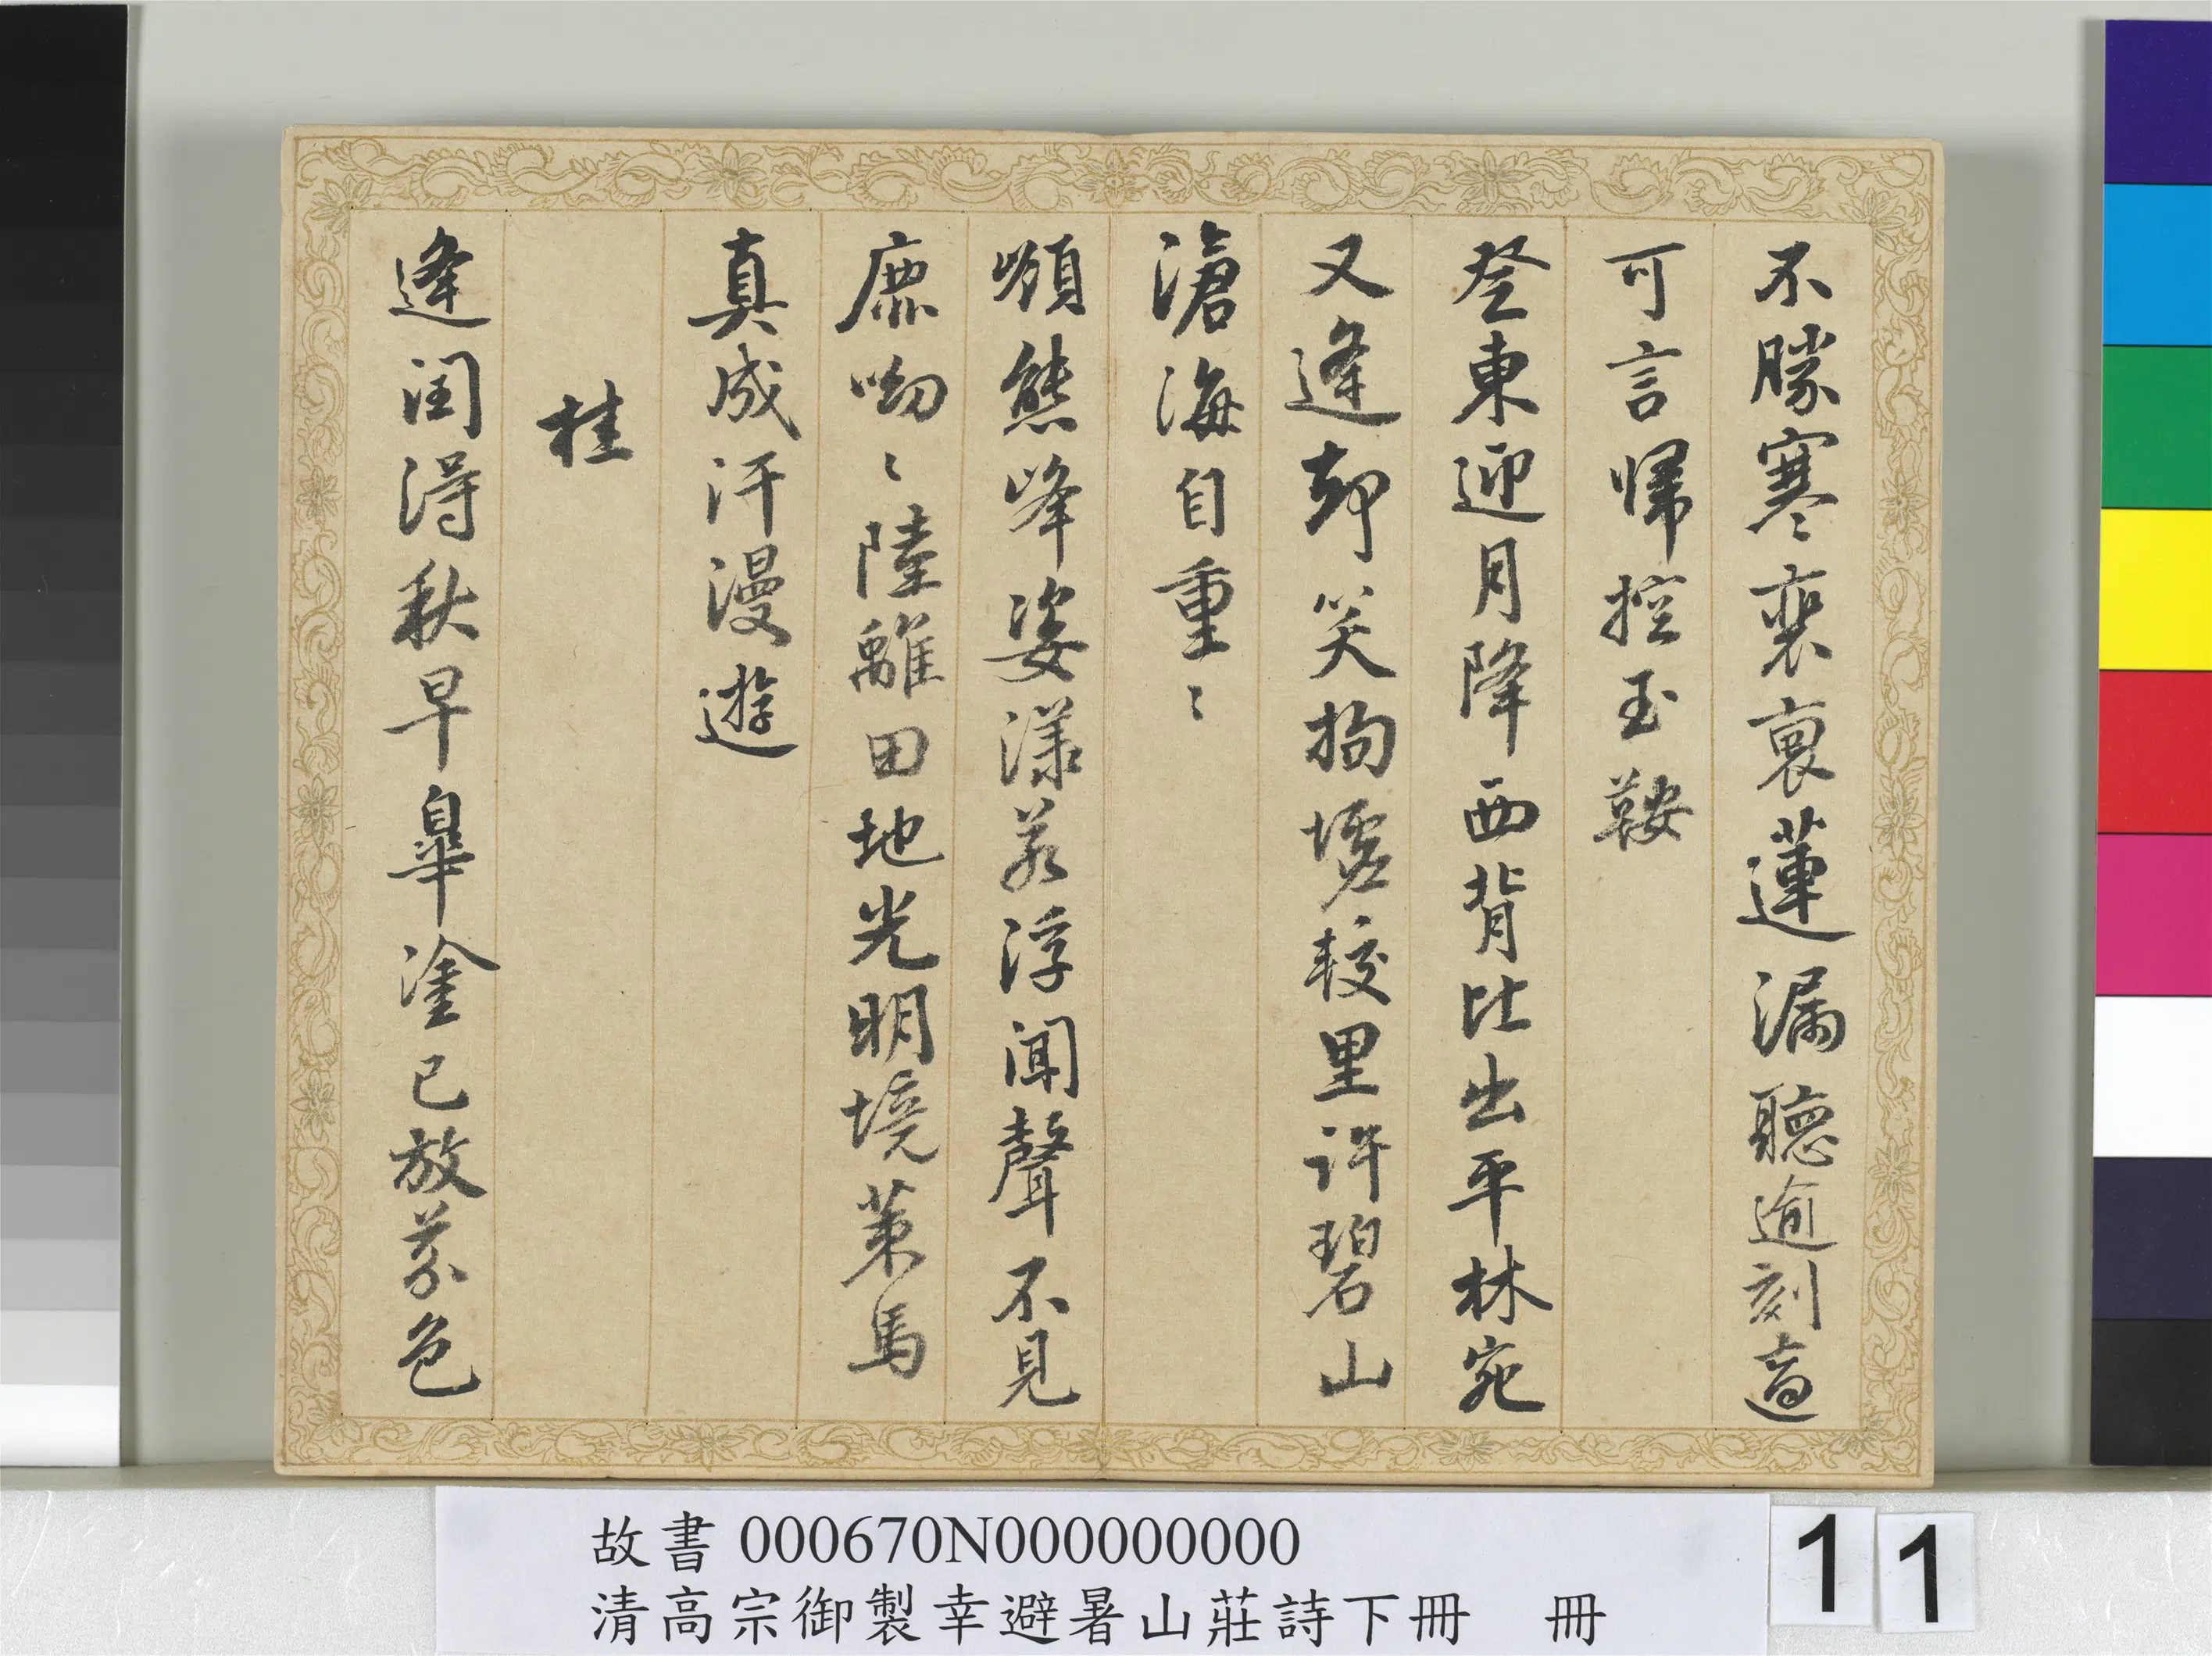 不勝寒裴裒蓮漏聽逾刻適
可言歸控玉鞍
登東迎月降西背比出平林宛
又逢却笑拘墟較里許碧山
滄海自重〻
嶺熊峰姿漾若浮聞聲不見
鹿呦〻陸離田地光明境策馬
真成汗漫遊
桂
逢閏得秋早皋塗已放芬色
故書 000670N000000000
清高宗御製幸避暑山莊詩下冊 冊
11